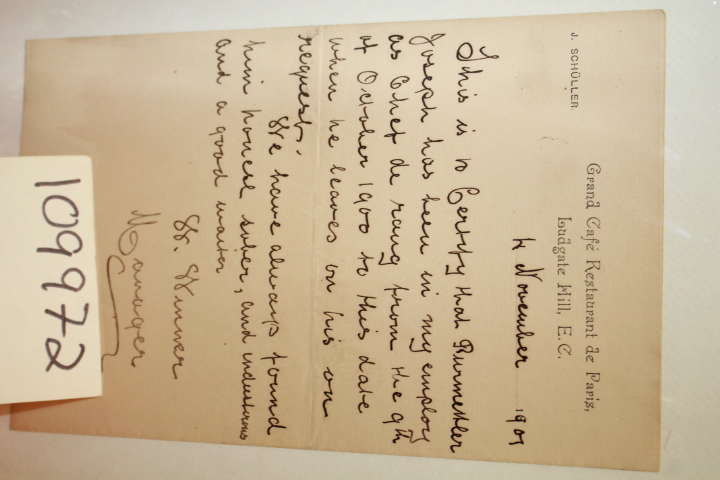 J. SCHÜLLER.
Grand Café Restaurant de Paris,
Ludgate Hill, E.C.
4 November 1901
This is to Certify that Burmester
Joseph has been in my employ
as Chef de rang from the 9th
of October 1900 to this date
when he leaves on his own
request.
We have always found
him honest, sober, and industrious
and a good waiter
W. Winner
Manager
109972